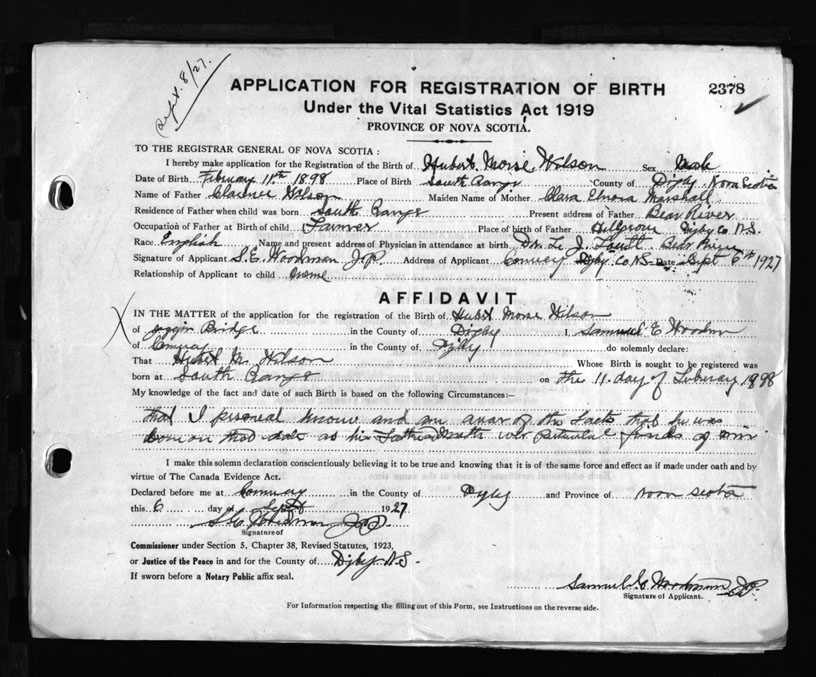 Sept. 8/27.
APPLICATION FOR REGISTRATION OF BIRTH
2378
Under the Vital Statistics Act 1919
PROVINCE OF NOVA SCOTIA.
TO THE REGISTRAR GENERAL OF NOVA SCOTIA :
I hereby make application for the Registration of the Birth of Hubert Morse Wilson Sex Male
Date of Birth February 11th 1898 Place of Birth South Range County of Digby Nova Scotia
Name of Father Wilson Maiden Name of Mother Clara Elnora Marshall
Residence of Father when child was born South Range Present address of Father Bear River
Occupation of Father at Birth of child Farmer Place of birth of Father Hillgrove Digby Co N.S.
Race English Name and present address of Physician in attendance at birth Dr. L. J. Lovitt Bear River
Signature of Applicant S. E. Woodman J.P. Address of Applicant Conway Digby Co NS Date Sept 6th 1927
Relationship of Applicant to child none
AFFIDAVIT
IN THE MATTER of the application for the registration of Birth of Hubert Morse Wilson
of Joggin Bridge in the County of Digby I, Samuel E Woodman
of Conway in the County of Digby do solemnly declare:
That Hubert M. Wilson Whose Birth is sought to be registered was
born at South Range on the 11 day of February 1898
My knowledge of the fact and date of such Birth is based on the following Circumstances:-
that I personal know and am awar of the facts that he was
born on that date as his Father & Mother wer particular friends of min
I make this solemn declaration conscientiously believing it to be true and knowing that it is of the same force and effect as if made under oath and by
virtue of The Canada Evidence Act.
Declared before me at Conway in the County of Digby and Province of Nova Scotia
this 6 day of Sept 1927
J.P.
Signature of
Commissioner under Section 5, Chapter 38, Revised Statutes, 1923,
or Justice of the Peace in and for the County of Digby N.S.
If sworn before a Notary Public affix seal.
Samuel E Woodman J.P.
Signature of Applicant.
For Information respecting the filling out of this Form, see Instructions on the reverse side.